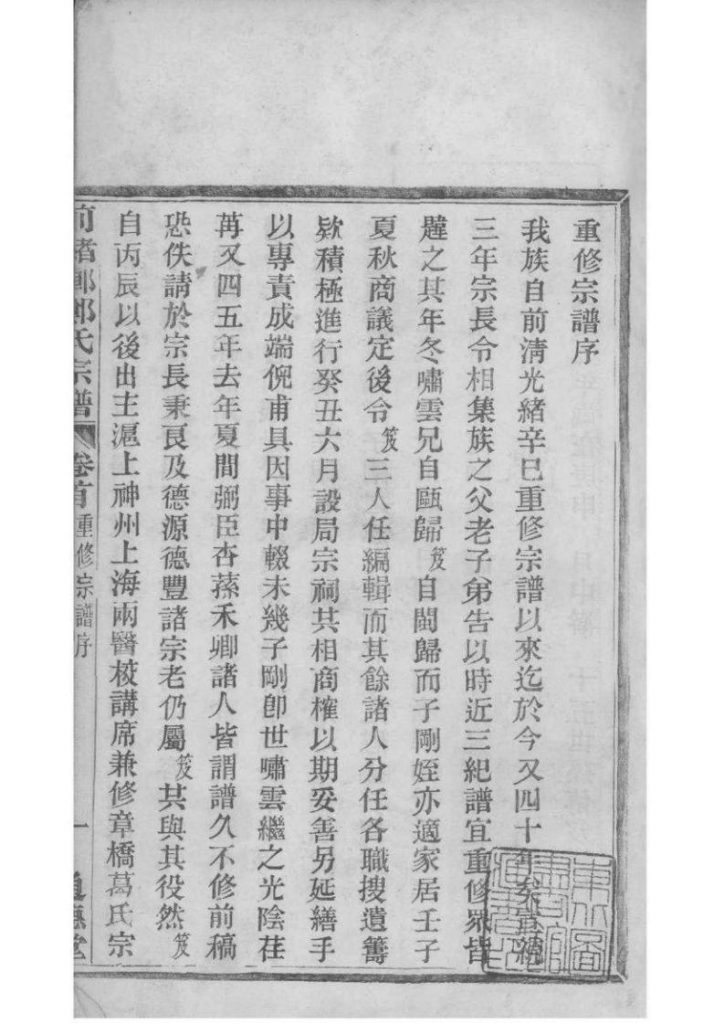 重修宗譜序
我族自前清光緒辛巳重修宗譜以來迄於今又四十年矣宣統
三年宗長令相集族之父老子弟告以時近三紀譜宜重修眾皆
韙之其年冬嘯雲兄自甌歸笈自閩歸而子剛姪亦適家居壬子
夏秋商議定後令笈三人任編輯而其餘諸人分任各職搜遺籌
欵積極進行癸丑六月設局宗祠共相商榷以期妥善另延繕手
以專責成端倪甫具因事中輟未幾子剛卽世嘯雲繼之光陰荏
苒又四五年去年夏間弼臣杏蓀禾卿諸人皆謂譜久不修前稿
恐佚請於宗長秉良及德源德豐諸宗老仍屬笈共與其役然笈
自丙辰以後出主滬上神州上海兩醫校講席兼修章橋葛氏宗
前渚鄭氏宗譜 卷首 重修宗譜序 一